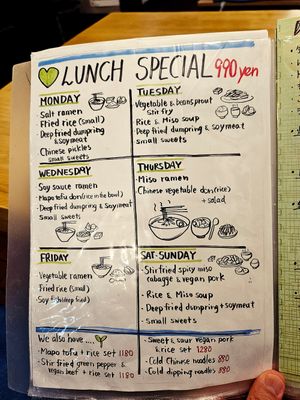 LUNCH SPECIAL 990 yen
MONDAY
· Salt ramen
· Fried rice (small)
· Deep fried dumpring
& soymeat
· Chinese pickles
small sweets
TUESDAY
· Vegetable & beansprout
Stir fry
· Rice & Miso soup
· Deep fried dumpring & soymeat
small sweets
WEDNESDAY
· Soy sauce ramen
· Mapo tofu don (rice in the bowl)
· Deep fried dumpring & soymeat
Small sweets
THURSDAY
· Miso ramen
· Chinese vegetable don (rice)
+ salad
FRIDAY
· Vegetable ramen
· Fried rice (small)
· Soy fish (deep fried)
SAT·SUNDAY
· Stir fried spicy miso
cabagge & vegan pork
· Rice & Miso soup
· Deep fried dumpring + soymeat
· Small sweets
We also have....
· Mapo tofu + rice set 1180
· Stir fried green pepper &
vegan beef + rice set 1180
· Sweet & sour vegan pork
& rice set 1280
· Cold Chinese noodles 880
· Cold dipping noodles 880